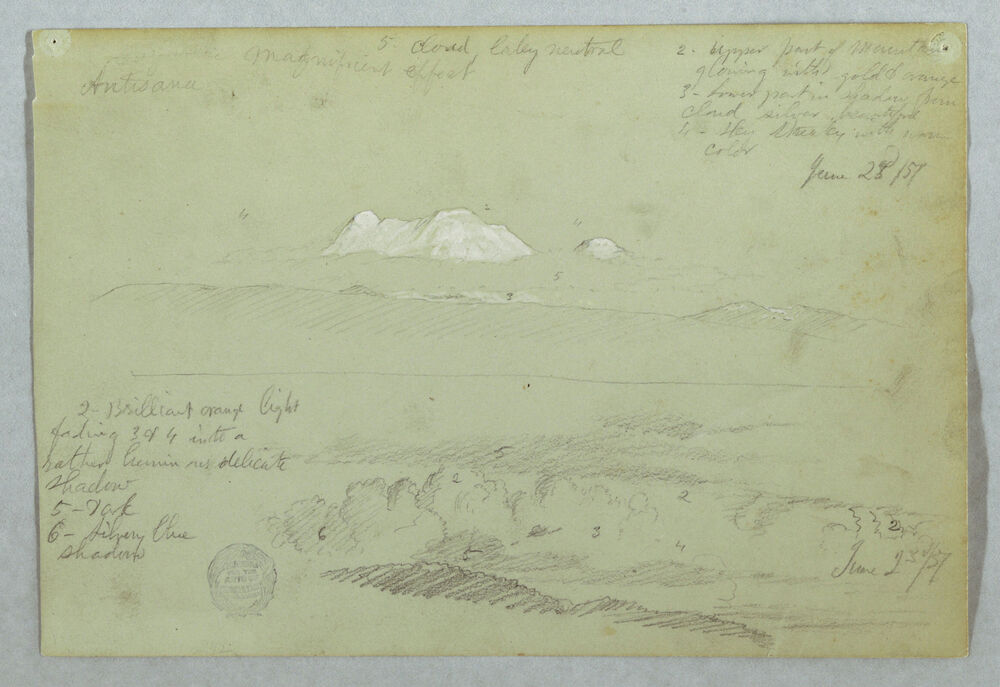 5- Cloud, laky neutral
magnificent effect
Antisana
2- Upper part of
glowing with gold & orange
3- Lower part in shadow from
cloud silver beautiful
4- Sky with warm
color
June 23d/57
4
2
4
5
3
2- Brilliant orange light
fading 3 & 4 into a
rather delicate
shadow
5- Dark
6- Silvery blue
shadow
5
2
2
6
3
2
4
5
June 23d/57